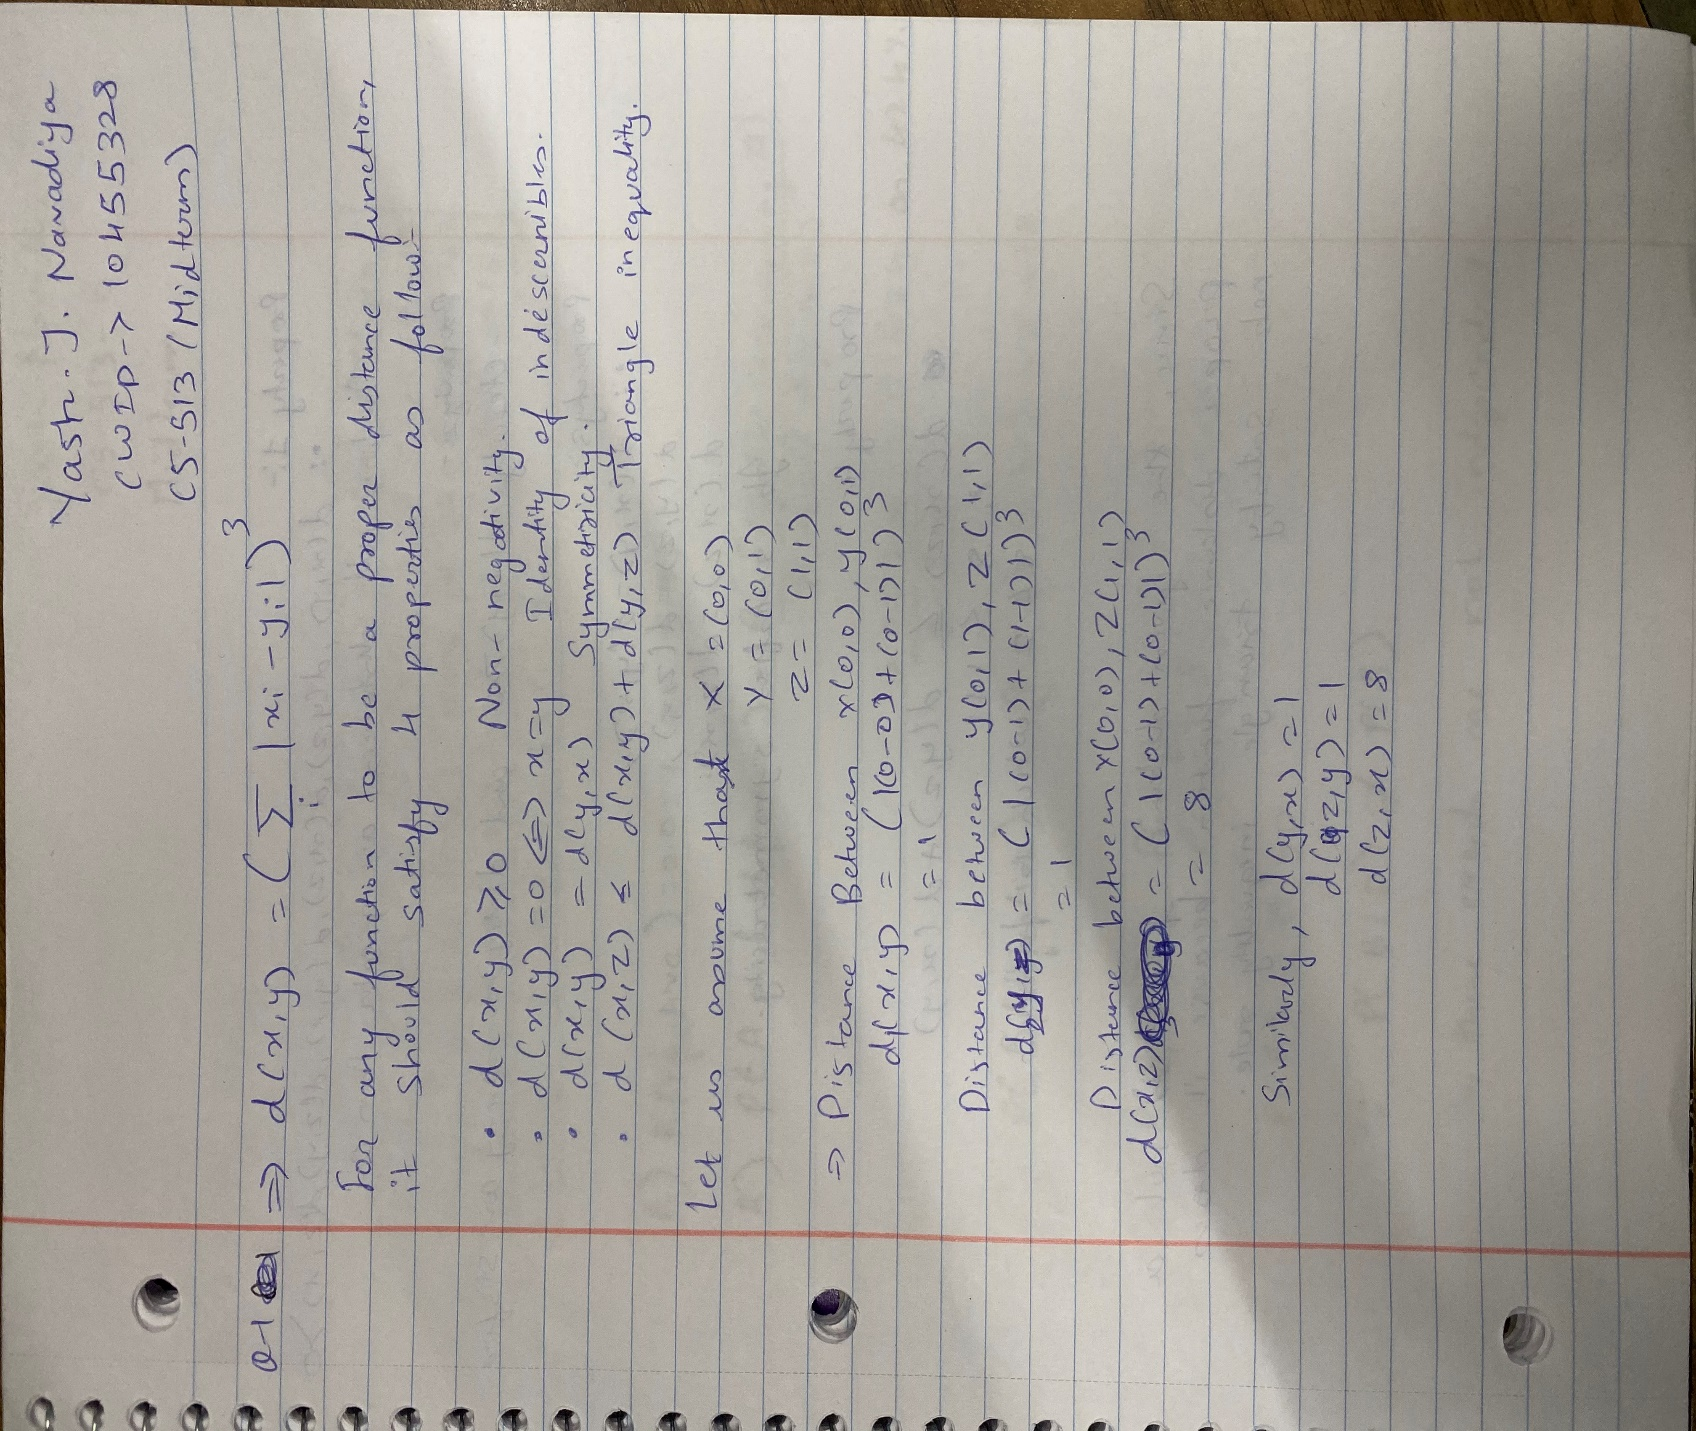 Yash. J. Navadiya
CWID -> 10455328
CS-513 (Midterm)
Q-1 => d(x,y) = (∑i |xi - yi|)^3
For any function to be a proper distance function,
it should satisfy 4 properties as follow:-
• d(x,y) ≥ 0 Non-negativity.
• d(x,y) = 0 <=> x=y Identity of indescernibles.
• d(x,y) = d(y,x) Symmetricity.
• d(x,z) ≤ d(x,y) + d(y,z) Triangle inequality.
Let us assume that X = (0,0)
Y = (0,1)
Z = (1,1)
=> Distance Between x(0,0), y(0,1)
d(x,y) = (|(0-0)|+(0-1)|)^3
= 1
Distance between y(0,1), Z(1,1)
d(y,z) = (|(0-1)+(1-1)|)^3
= 1
Distance between X(0,0), Z(1,1)
d(x,z) = (|(0-1)+(0-1)|)^3
= 8
Similarly, d(y,x) = 1
d(z,y) = 1
d(z,x) = 8